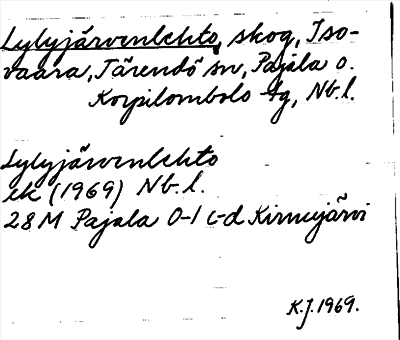 Lylyjärvenlehto, skog, Iso-
vaara, Tärendö sn, Pajala o.
Korpilombolo tg, Nb. l.
Lylyjärvenlehto
ek (1969) Nb. l.
28 M Pajala 0-1 c-d Kirnujärvi
K.J. 1969.